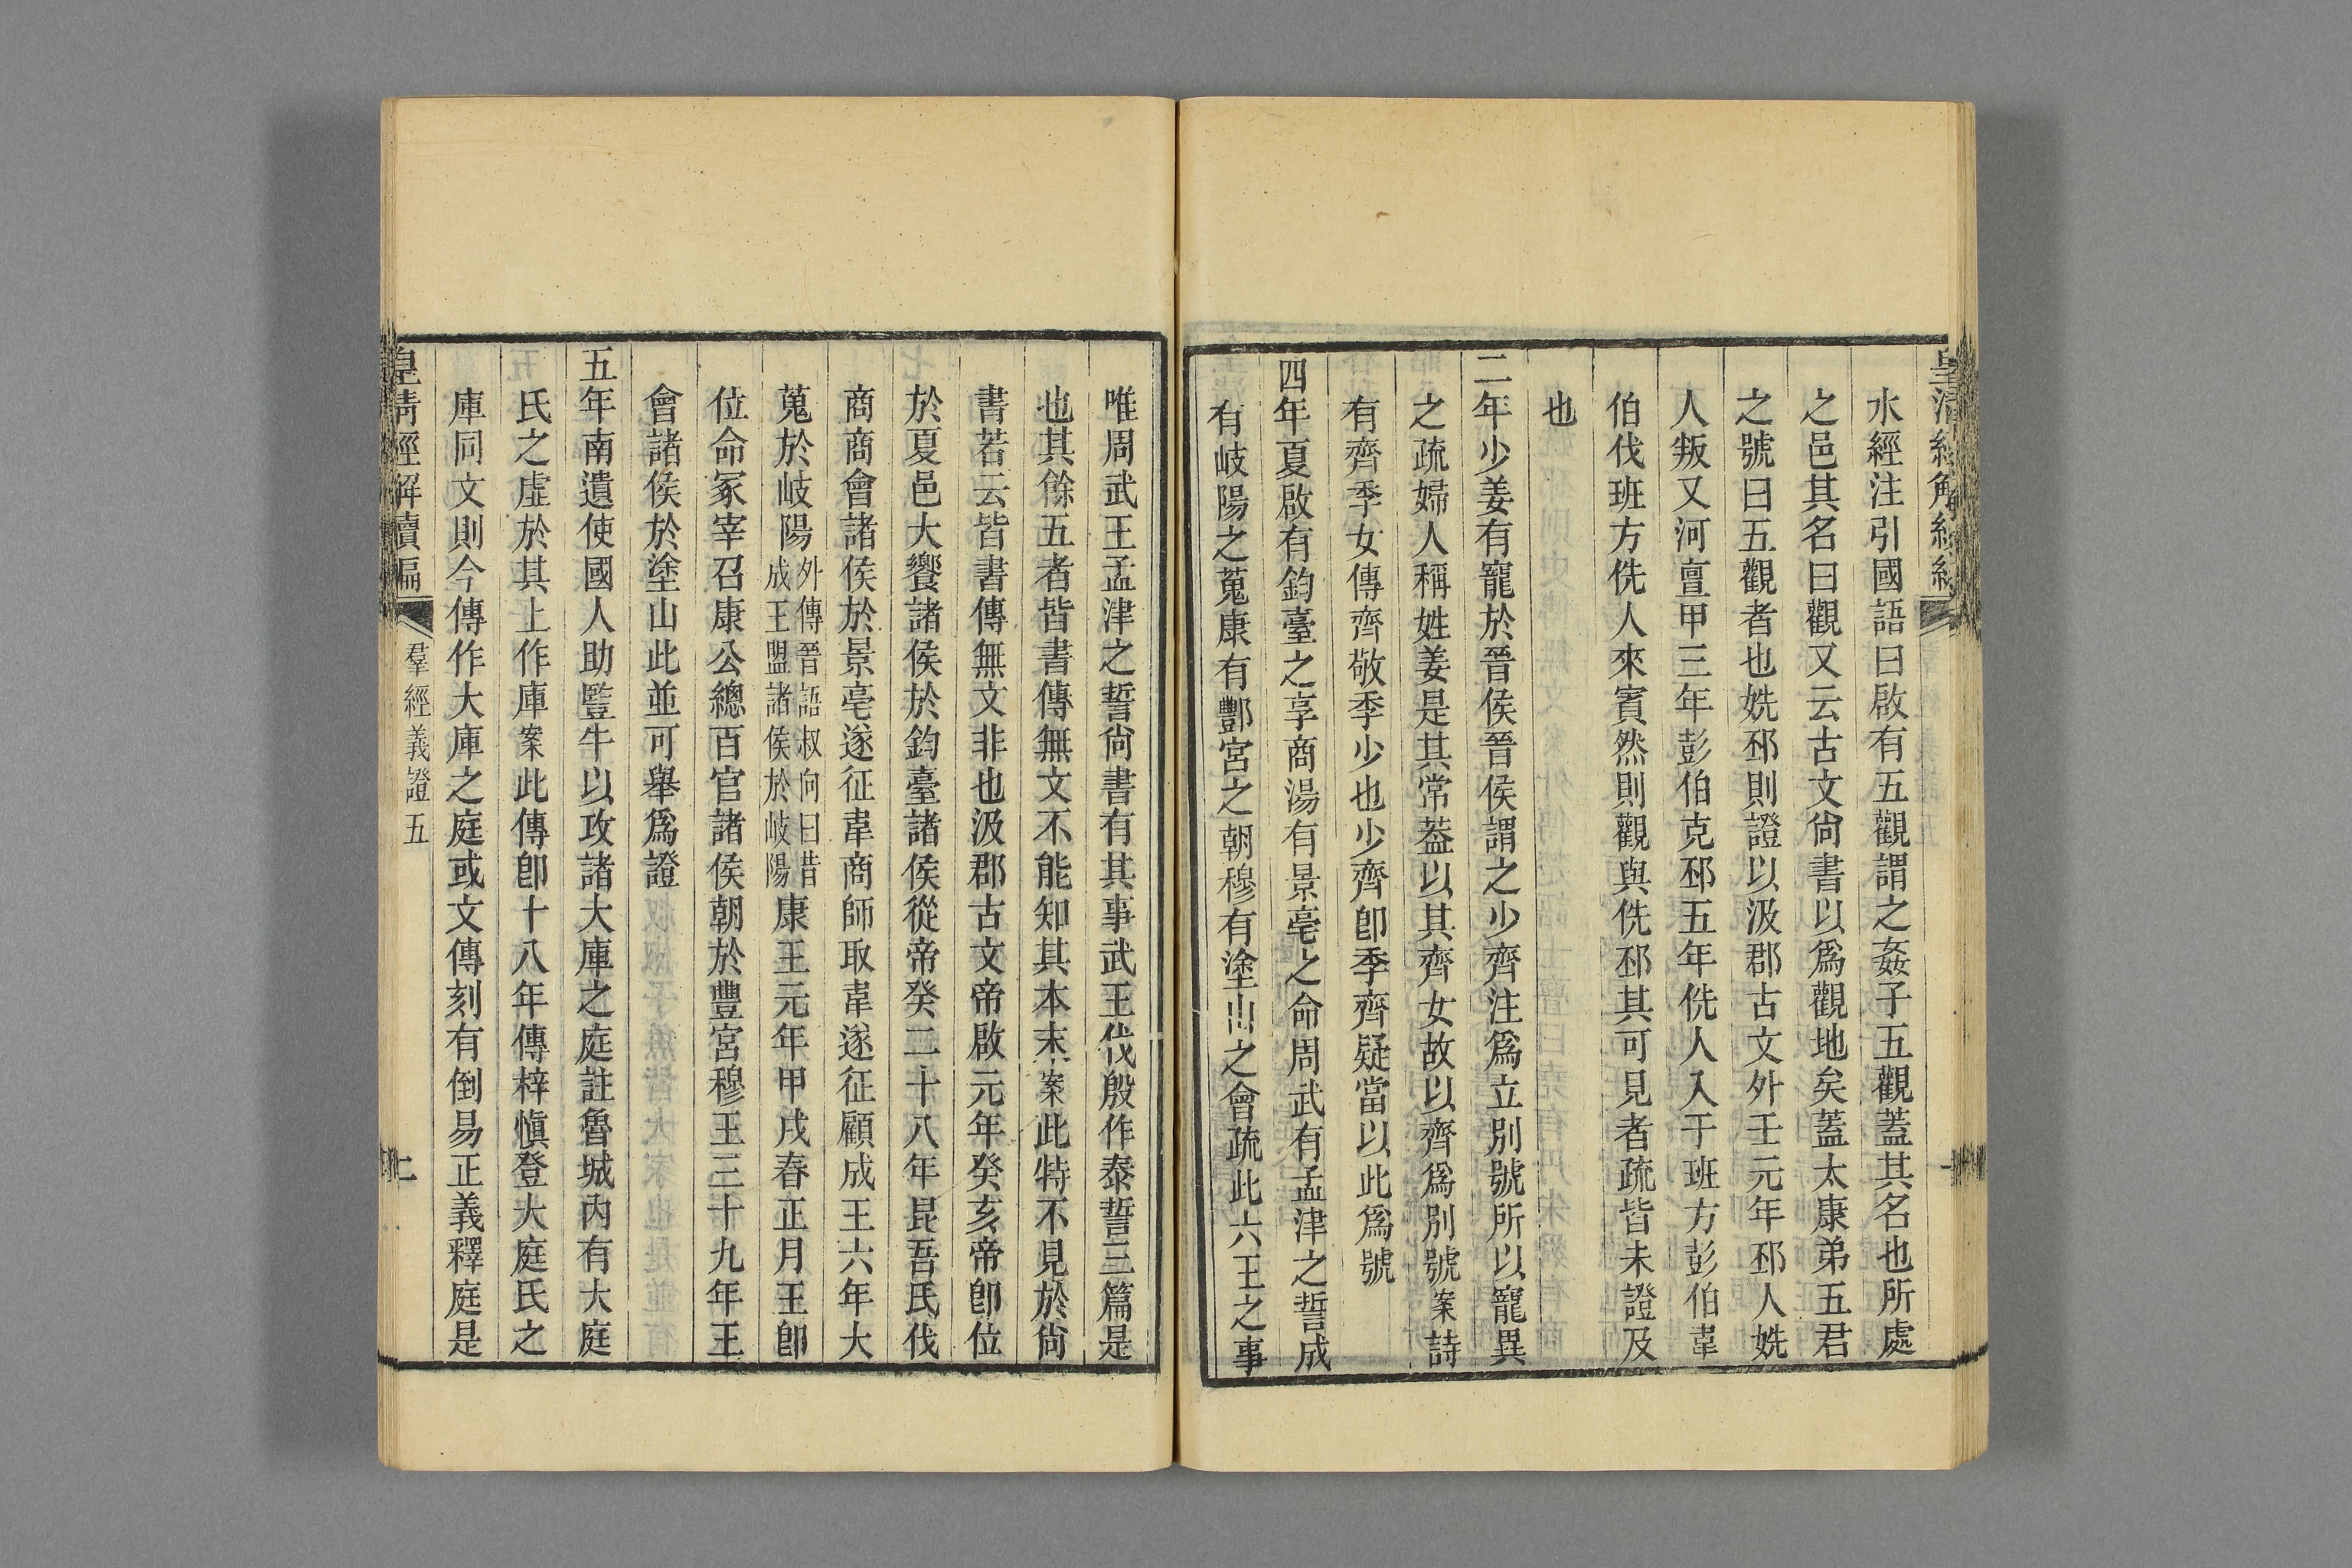 水經注引國語曰啟有五觀謂之姦子五觀蓋其名也所處
之邑其名曰觀又云古文尙書以爲觀地矣蓋太康弟五君
之號曰五觀者也姺邳則證以汲郡古文外壬元年邳人姺
人叛又河亶甲三年彭伯克邳五年侁人入于班方彭伯韋
伯伐班方侁人來賓然則觀與侁邳其可見者疏皆未證及
也
二年少姜有寵於晉侯晉侯謂之少齊注爲立別號所以寵異
之疏婦人稱姓姜是其常葢以其齊女故以齊爲別號案詩
有齊季女傳齊敬季少也少齊卽季齊疑當以此爲號
四年夏啟有鈞臺之享商湯有景亳之命周武有孟津之誓成
有岐陽之蒐康有酆宮之朝穆有塗山之會疏此六王之事
唯周武王孟津之誓尙書有其事武王伐殷作泰誓三篇是
也其餘五者皆書傳無文不能知其本末案此特不見於尙
書若云皆書傳無文非也汲郡古文帝啟元年癸亥帝卽位
於夏邑大饗諸侯於鈞臺諸侯從帝癸二十八年昆吾氏伐
商商會諸侯於景亳遂征韋商師取韋遂征顧成王六年大
蒐於岐陽外傳晉語叔向曰昔成王盟諸侯於岐陽康王元年甲戌春正月王卽
位命冢宰召康公總百官諸侯朝於豐宮穆王三十九年王
會諸侯於塗山此並可舉爲證
五年南遺使國人助豎牛以攻諸大庫之庭註魯城內有大庭
氏之虛於其上作庫案此傳卽十八年傳梓愼登大庭氏之
庫同文則今傳作大庫之庭或文傳刻有倒易正義釋庭是
皇清經解續編
羣經義證五
二